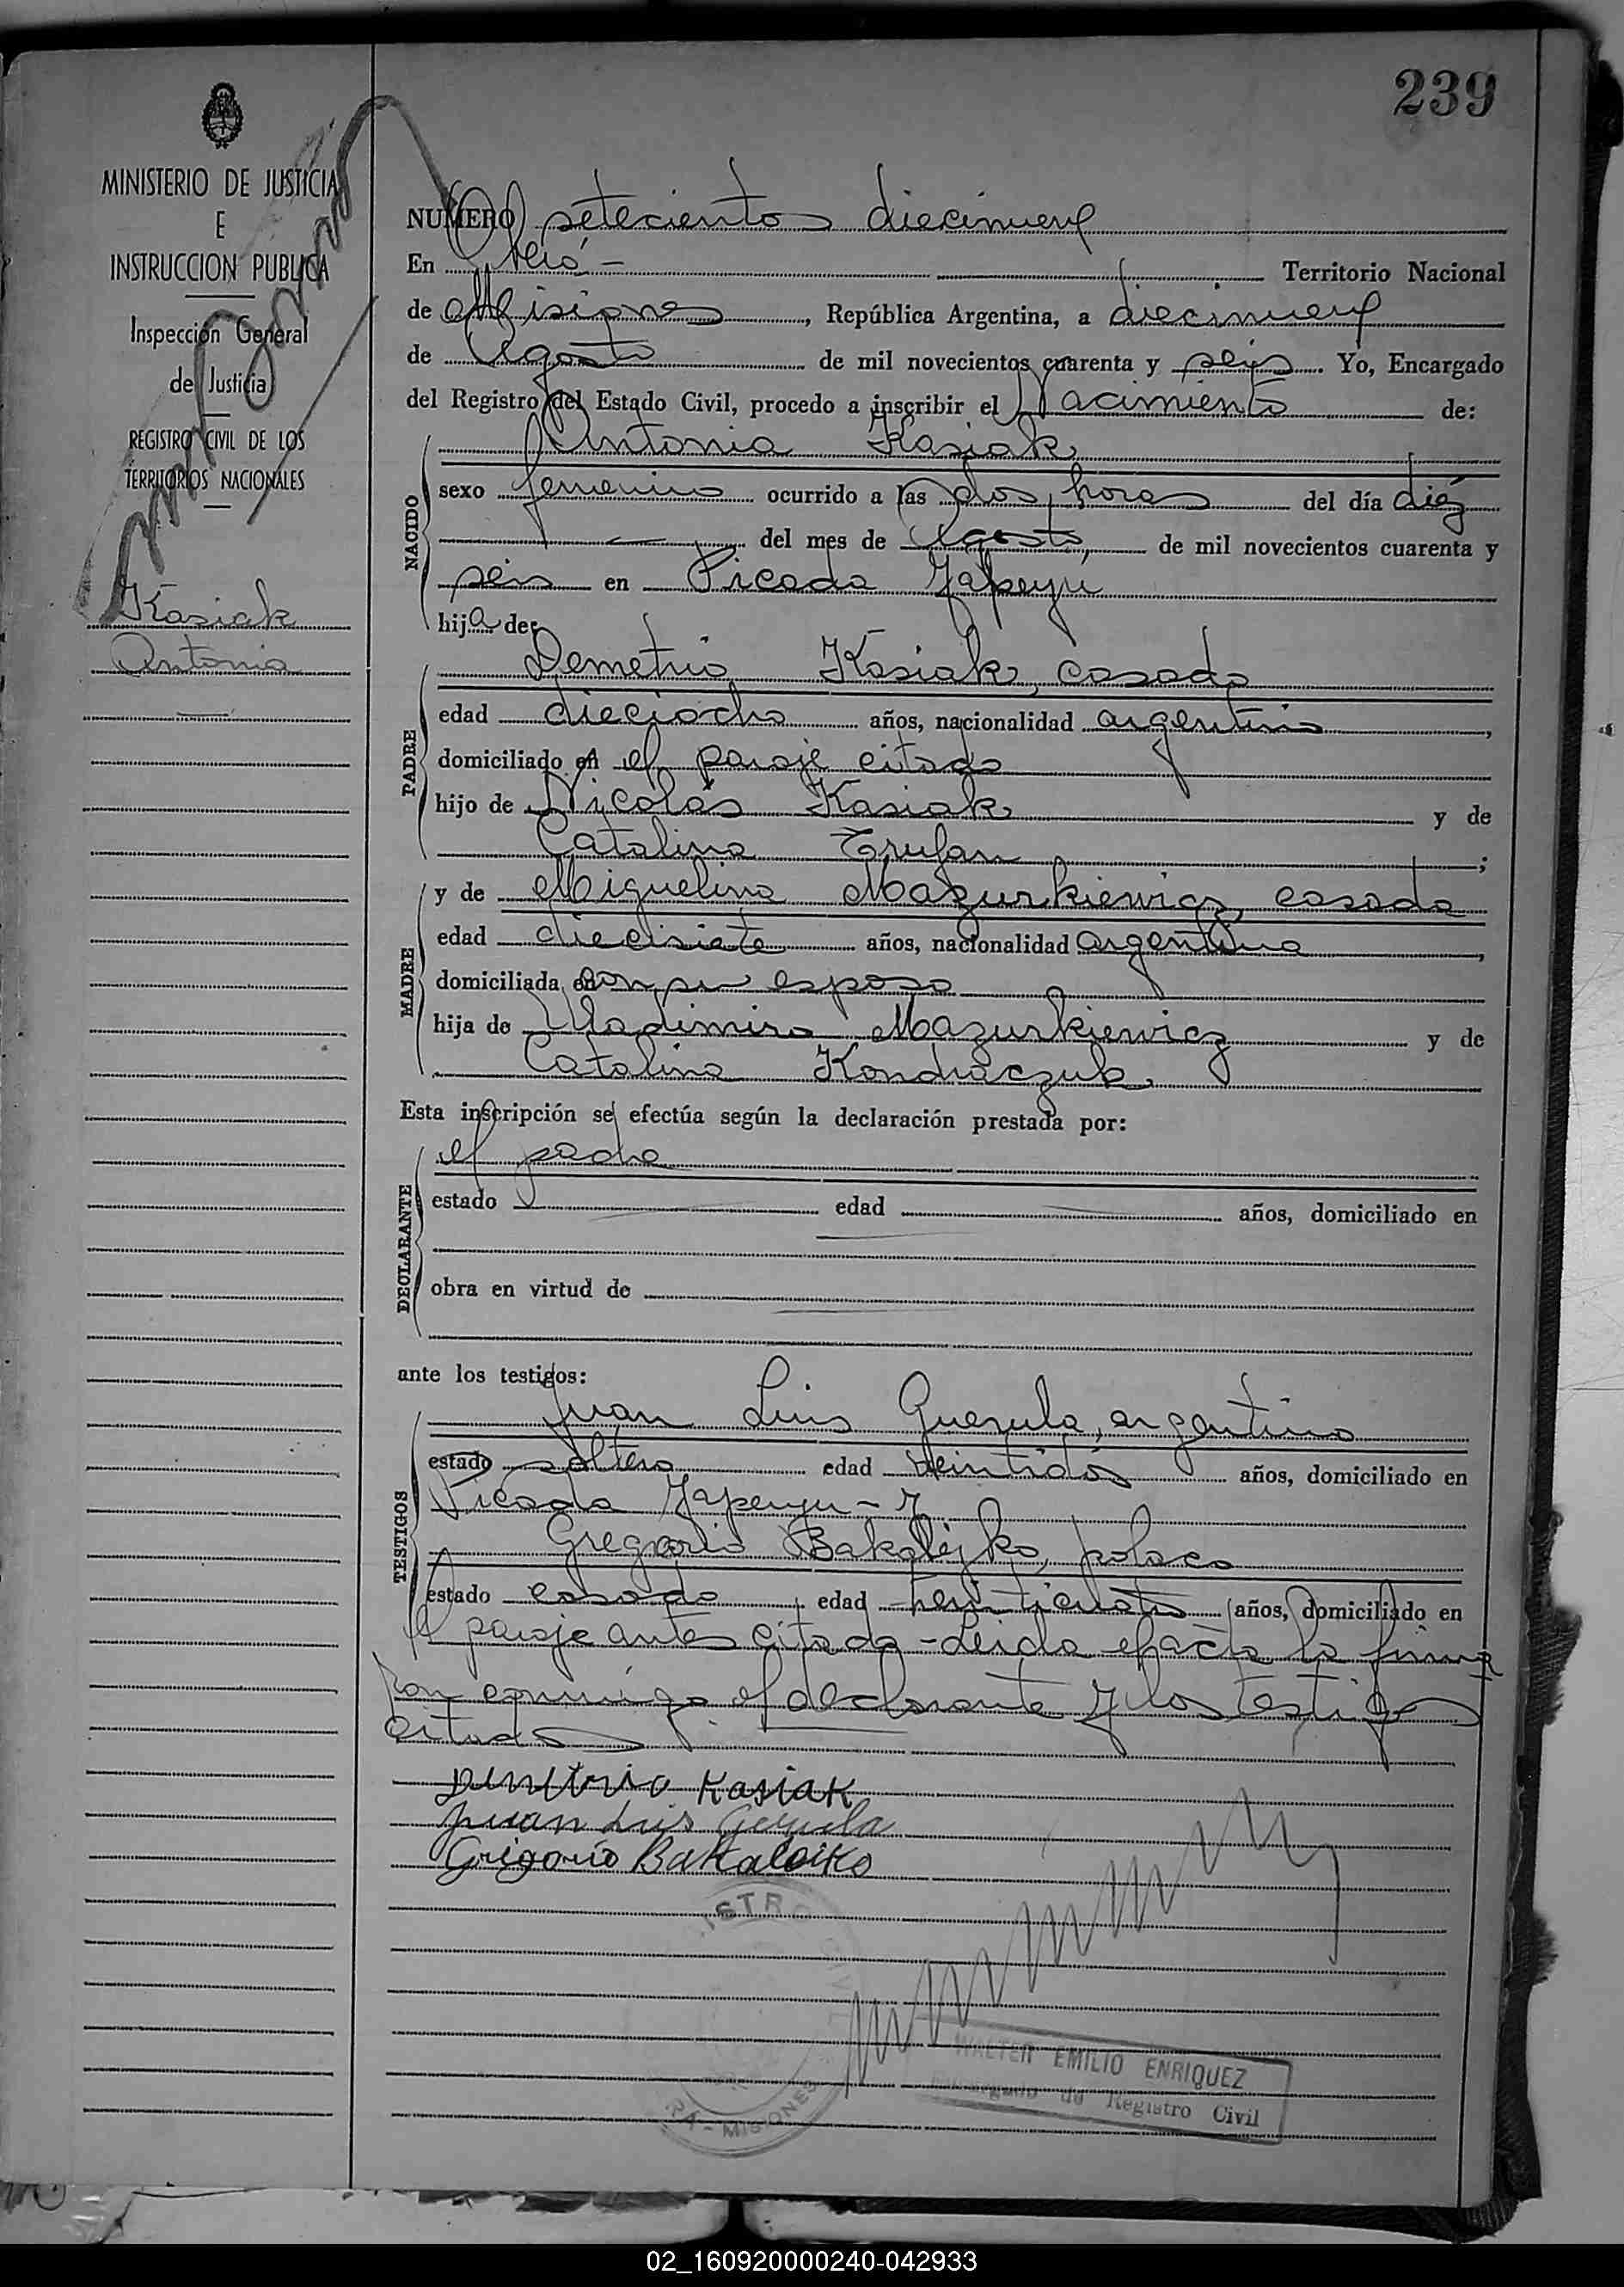 239
MINISTERIO DE JUSTICIA
E
INSTRUCCION PUBLICA
Inspección General
de Justicia
REGISTRO CIVIL DE LOS
TERRITORIOS NACIONALES
Kasiak
Antonia
NUMERO setecientos diecinueve
En Oberá - Territorio Nacional
de Misiones, República Argentina, a diecinueve
de Agosto de mil novecientos cuarenta y seis. Yo, Encargado
del Registro del Estado Civil, procedo a inscribir el Nacimiento de:
NACIDO
Antonia Kasiak
sexo femenino ocurrido a las dos horas del día diez
del mes de Agosto, de mil novecientos cuarenta y
seis en Picada Yapeyú
hija de:
PADRE
Demetrio Kasiak, casado
edad dieciocho años, nacionalidad argentino,
domiciliado en el paraje citado
hijo de Nicolás Kasiak y de
Catalina Trufan;
MADRE
y de Miguelina Mazurkiewicz, casada
edad diecisiete años, nacionalidad argentina,
domiciliada con su esposo
hija de Wladimiro Mazurkiewicz y de
Catalina Kondraczuk
Esta inscripción se efectúa según la declaración prestada por:
DECLARANTE
el padre
estado edad años, domiciliado en
obra en virtud de
ante los testigos:
TESTIGOS
Juan Luis Guerula, argentino
estado soltero edad veintidós años, domiciliado en
Picada Yapeyu - y
Gregorio Bakalejko, polaco
estado casado edad treinticuatro años, domiciliado en
el paraje antes citado - Leida el acta la firma
ron conmigo el declarante y los testigos
citados
Demetrio Kasiak
Juan Luis Gerula
Grigorio Bakaleiko
ISTRO CIVIL
RA - MISIONES
WALTER EMILIO ENRIQUEZ
Encargado du Registro Civil
02_160920000240-042933